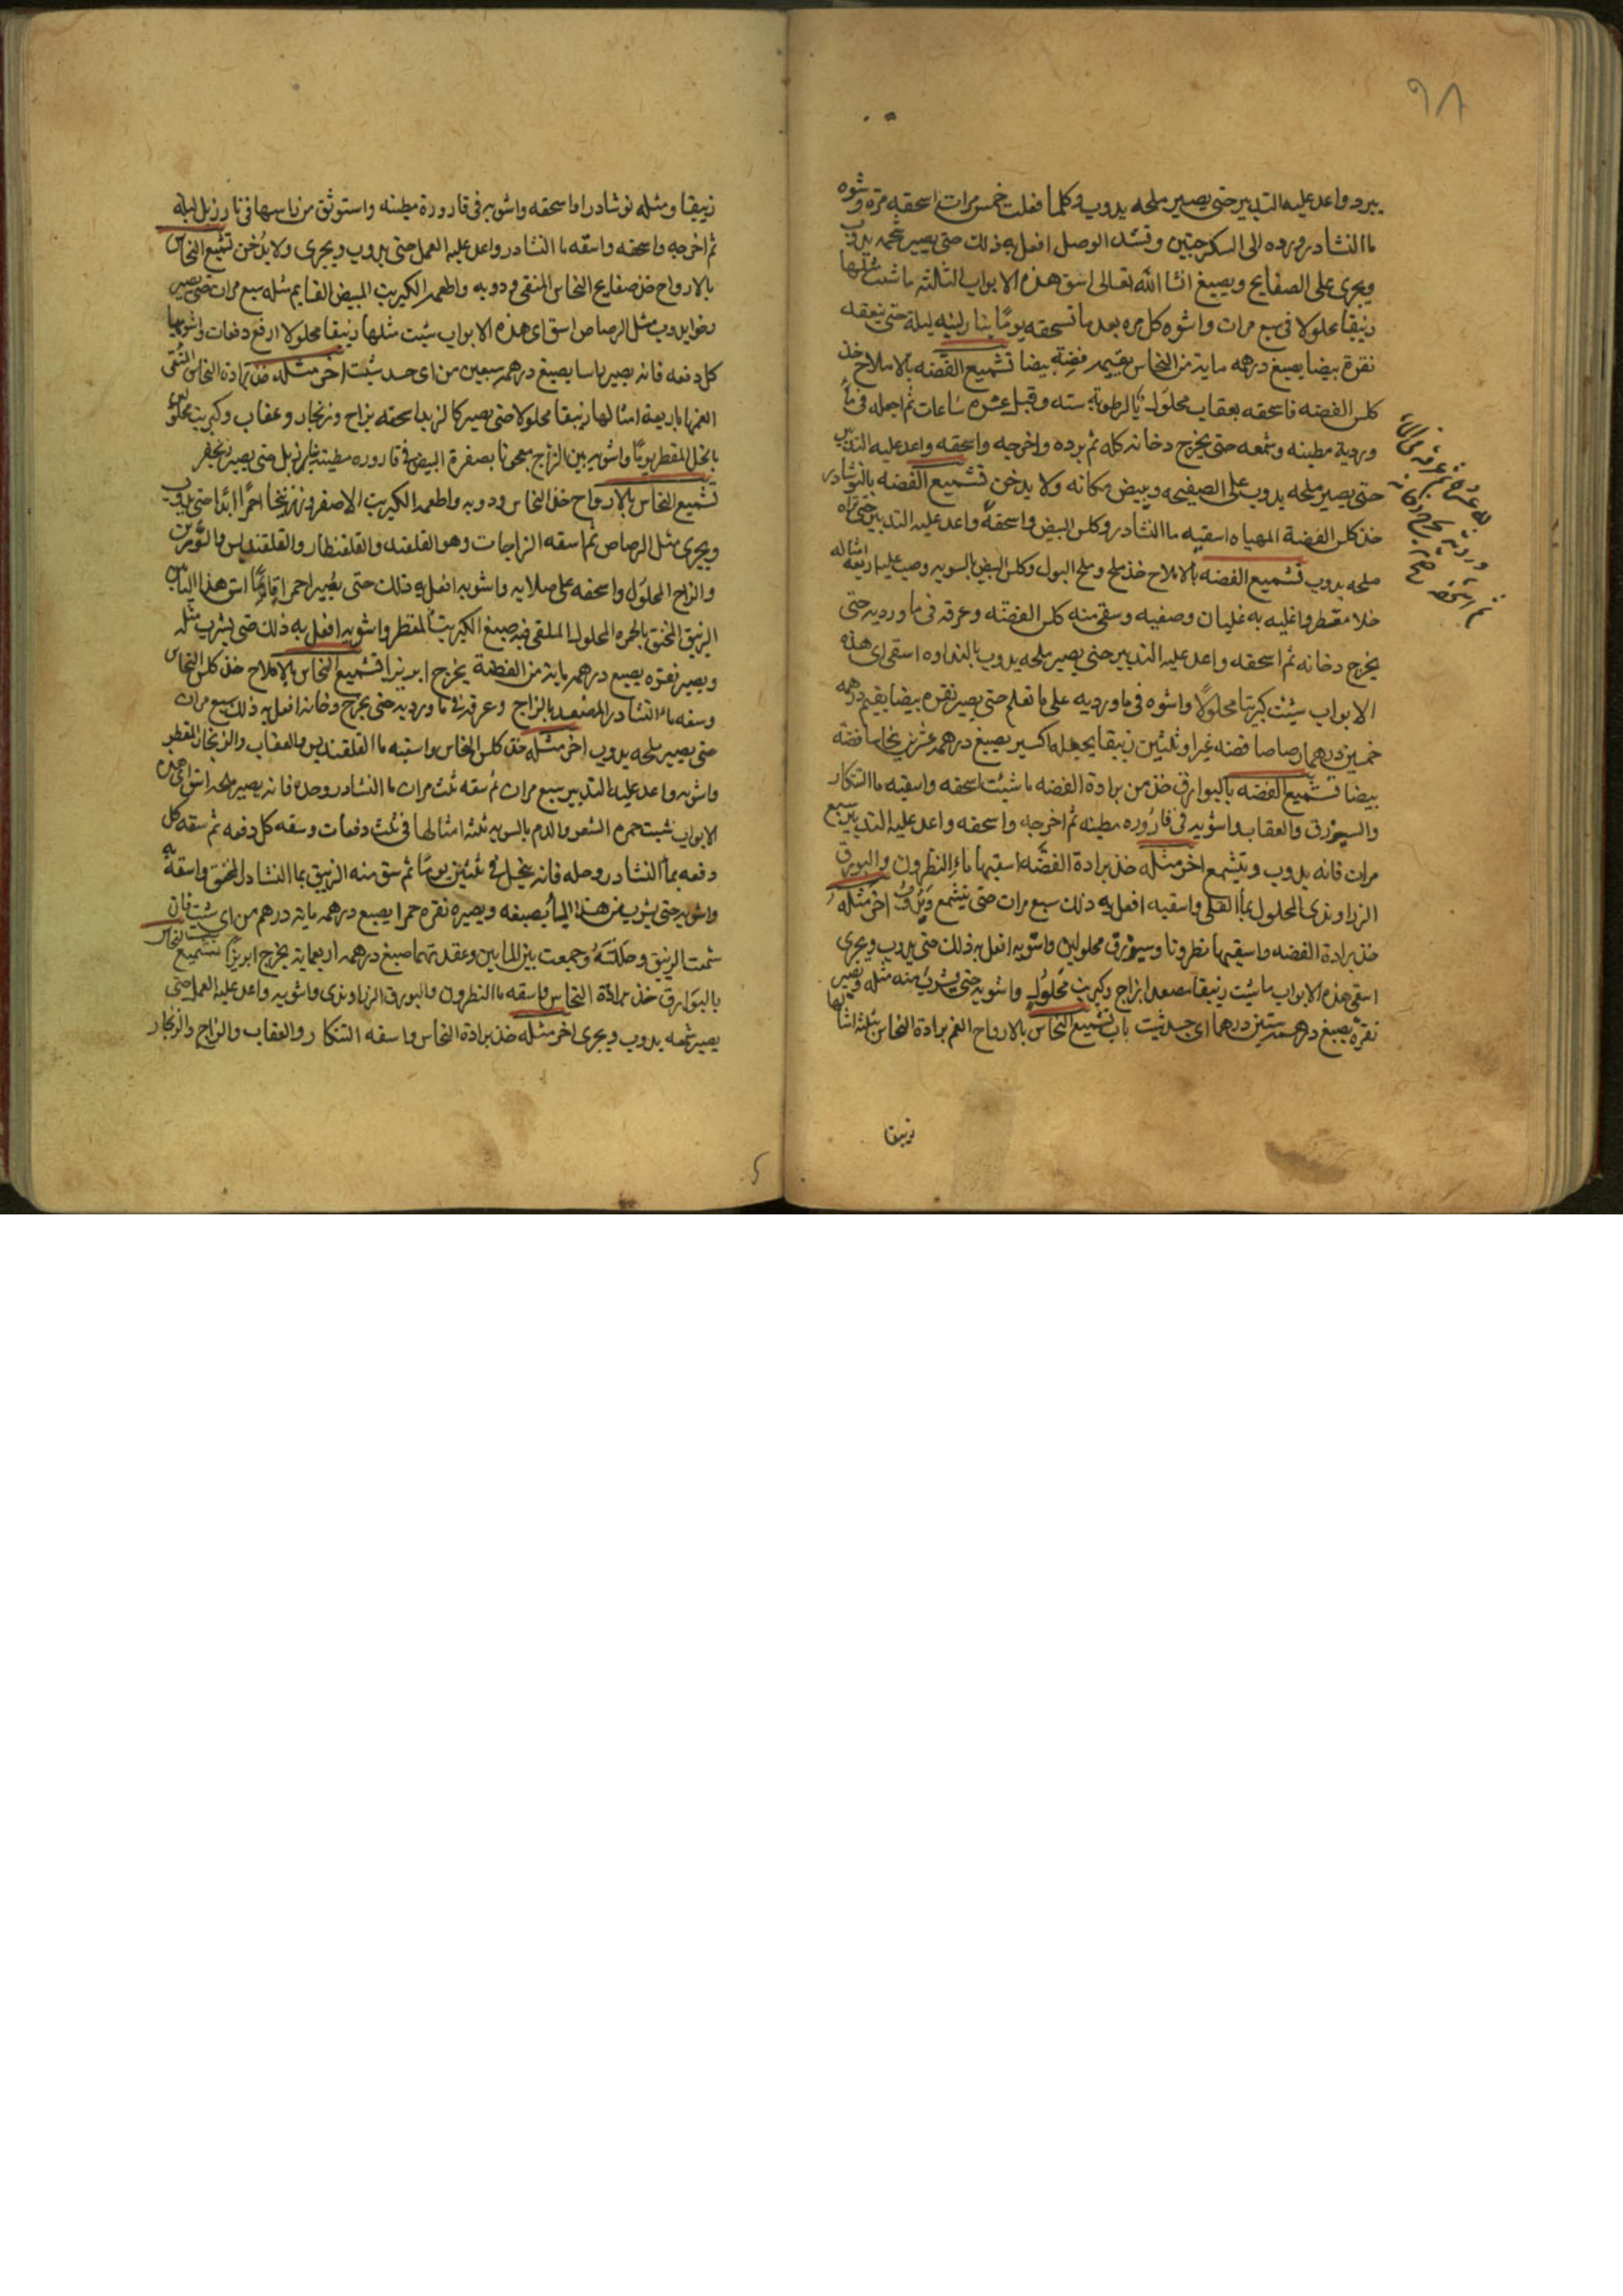 ٩٨
يبرد واعد عليه التدبير حتى يصير ملحه يدوب وكلما فعلت خمس مرات اسحقه مرة وشوه
ما النشادر ورده الى السكرجتين وتشد الوصل افعل به ذلك حتى يصير شحمه يدوب
ويجرى على الصفايح ويصبغ انشا الله تعالى اسق هذه الابواب الثالثه ما شئت مثلها
زيبقا محلولا فى سبع مرات واشوه كل مره بعد ما تسحقه يوما بنار لينه ليلة حتى تعقده
نقرة بيضا يصبغ درهمه ماية من النحاس يقيمه فضة بيضا تشميع الفضه بالاملاح خذ
كلس الفضه فاسحقه بعقاب محلول بالرطوبة سته وقيل عشره ساعات ثم اجعله فى ما
وردية مطينه وشمعه حتى يخرج دخانه كله ثم برده واخرجه واسحقه واعد عليه التدبير
حتى يصير ملحه يدوب على الصفيحه ويبيض مكانه ولا يدخن تشميع الفضه بالنوشادر
خذ كلس الفضة المهياه اسقيه ما النشادر وكلس البيض واسحقه واعد عليه التدبير حتى تراه
ملحه يدوب تشميع الفضه بالاملاح خذ ملح وملح البول وكلس البيض بالسويه وصب عليه اربعة امثاله
خلا مقطر واغليه به غليان وصفيه وسقى منه كلس الفضة وعرقه فى ماورديه حتى
يخرج دخانه ثم اسحقه واعد عليه التدبير حتى يصير ملحه يدوب بالنداوه اسقى اى هذه
الابواب شيئت كبريتا محلولا واشوه فى ماورديه على ما تعلم حتى يصير نقره بيضا يقيم درهمه
خمسين درهما رصاصا فضه غيرا وثلثين زيبقا يجعله اكسير يصبغ درهمه عشرين نحاسا فضة
بيضا تشميع الفضه بالبوارق خذ من برادة الفضه ما شئت اسحقه واسقيه ما التنكار
والبورق والعقاب واشويه فى قاروره مطينه ثم اخرجه واسحقه واعد عليه التدبير سبع
مرات فانه يدوب ويتشمع اخر مثله خذ برادة الفضه اسقيها ماء النطرون والبورق
الزراوندى المحلول بماء القلى واسقيه افعل به ذلك سبع مرات حتى يتشمع ويدوب اخر مثله
خذ برادة الفضه واسقيها نطرونا وبورق محلولين واشويه افعل به ذلك حتى يدوب ويجرى
اسقى هذه الابواب ما شئت زيبقا مصعدا بزاج وكبريت محلول واشويه حتى يشرب منه مثله ويصير
نقرة يصبغ درهمه ستين درهما اى جسد شئت باب تشميع النحاس بالارواح الغم برادة النحاس بثلثة امثالها
زيبقا
زيبقا ومثله نوشادرا واسحقه واشويه فى قارورة مطينه واستوثق من راسها فى نار زبل ليلة
ثم اخرجه واسحقه واسقه ما النشادر واعد عليه العمل حتى يدوب ويجرى ولا يدخن تشميع النحاس
بالارواح خذ صفايح النحاس المنقى ودوبه واطعمه الكبريت المبيض القايم مثله سبع مرات حتى يصير
رخوا يدوب مثل الرصاص اسق اى هذه الابواب شيت مثلها زيبقا محلولا اربع دفعات واشويها
كل دفعه فانه يصير باسا يصبغ درهمه سبعين من اى جسد شئت اخر مثله خذ برادة النحاس المنقى
الغمها باربعة امثالها زيبقا محلولا حتى يصير كالزبد اسحقه بزاج وزنجار وعقاب وكبريت محلول
بالخل المقطر يوما واشويه بين الزاج معجونا بصفرة البيض فى قاروره مطينه بنار زبل حتى يصير زنجفر
تشميع النحاس بالارواح خذ النحاس ودوبه واطعمه الكبريت الاصفر وزرنيخا احمرا ابدا حتى يدوب
ويجرى مثل الرصاص ثم اسقه الزاجات وهو القلقند والقلقنطار والقلقنديس والسورين
والزاج المحلول واسحقه على صلايه واشويه افعل به ذلك حتى يصير احمرا قايما اسق هذا الباب
الزيبق المخنق بالحمره المحلول الملقى فيه صبغ الكبريت المقطر واشويه افعل به ذلك حتى يشرب مثله
ويصير نقره يصبغ درهمه ماية من الفضة يخرج ابريزا تشميع النحاس بالاملاح خذ كلس النحاس
وسقه ماء النشادر المصعد بالزاج وعرقه فى ماورديه حتى يخرج دخانه افعل به ذلك سبع مرات
حتى يصير ملحه يدوب اخر مثله خذ كلس النحاس واسقيه ما القلقنديس والعقاب والزنجار المقطر
واشويه واعد عليه التدبير سبع مرات ثم سقه ثلث مرات ما النشادر وحده فانه يصير ملحه اسق اى هذه
الابواب شيت حمرة الشعر والدم بالسويه ثلثة امثالها فى ثلث دفعات وسقه كل دفعه ثم سقه كل
دفعه بماء النشادر وحله فانه ينحل فى ثلثين يوما ثم سق منه الزيبق بماء النشادر المخنق واسقه به
واشويه حتى يشرب من هذا الماء يصبغه ويصيره نقره حمرا يصبغ درهمه ماية درهم من اى شيت فان
شمعت الزيبق وحللته وجمعت بين الماين وعقدتهما صبغ درهمه اربعماية يخرج ابريزا تشميع النحاس
بالبوارق خذ برادة النحاس واسقه ما النطرون والبورق الزراوندى واشويه واعد عليه العمل حتى
يصير شمعه يدوب ويجرى اخر مثله خذ برادة النحاس واسقه التنكار والعقاب والزاج والزنجار